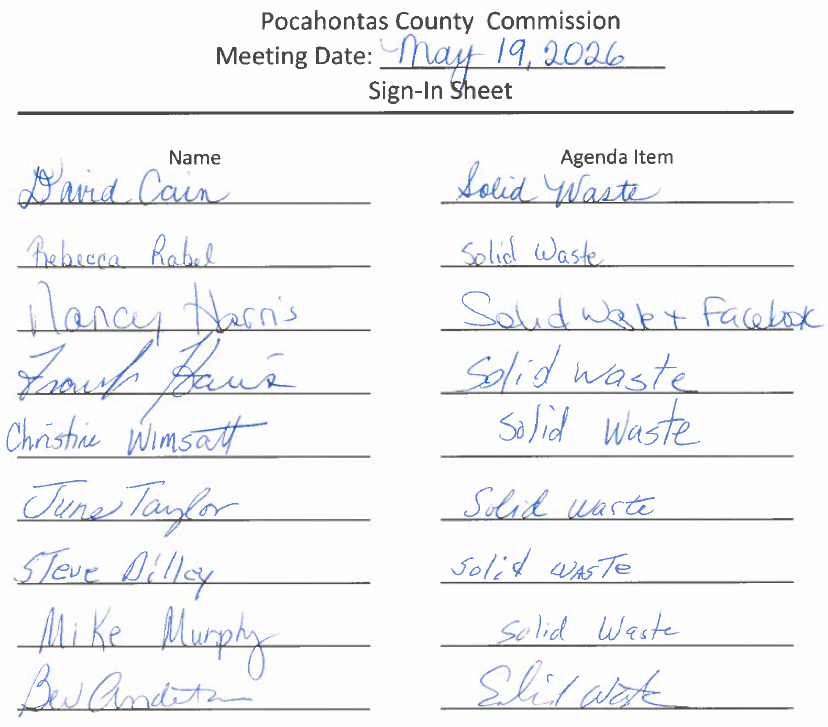 Pocahontas County Commission
Meeting Date: May 19, 2026
Sign-In Sheet
Name Agenda Item
David Cain Solid Waste
Rebecca Rabel Solid Waste
Nancy Harris Solid Waste + Facebook
Frank Solid waste
Christine Wimsatt Solid Waste
June Taylor Solid waste
Steve Dilley Solid WASTe
Mike Murphy Solid Waste
Solid Waste